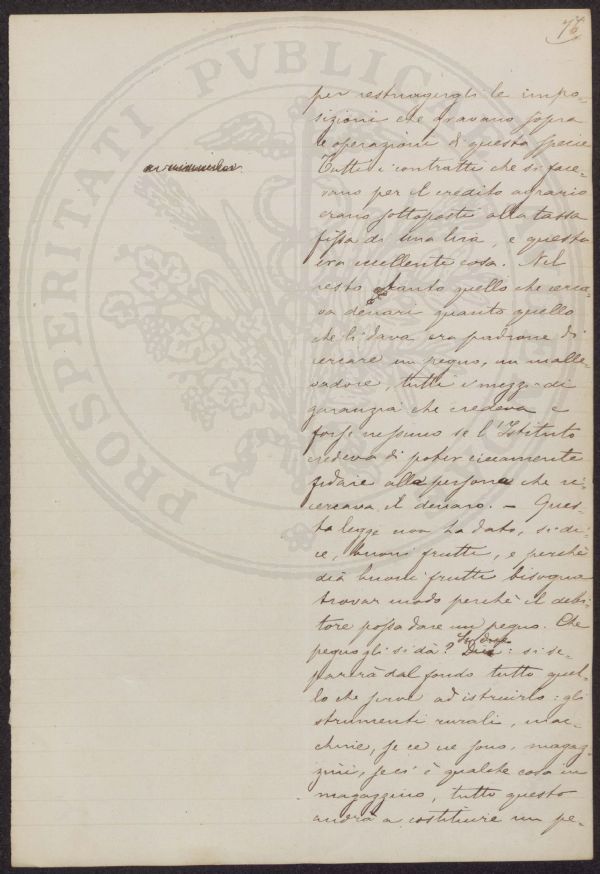 76
per restringergli le impo-
sizioni che gravano sopra
le operazioni di questa specie
Tutti i contratti che si face-
vano per il credito agrario
erano sottoposti alla tassa
fissa di una lira, e questa
era eccellente cosa. Nel
resto tanto quello che cerca-
va denari quanto quello
che li dava era padrone di
cercare un pegno, un malle-
vadore, tutti i mezzi di
garanzia che credeva e
forse nessuno se l'Istituto
credeva di poter ciecamente
fidare alla persona che ri-
cercava il denaro. – Ques-
ta legge non ha dato, si di-
ce, buoni frutti, e perchè
dia buoni frutti bisogna
trovar modo perchè il debi-
tore possa dare un pegno. Che
pegno gli si dà? Si dice: si se-
parerà dal fondo tutto quel-
lo che serve ad istruirlo: gli
strumenti rurali, mac-
chine, se ce ne sono, magaz-
zini, se ci è qualche cosa in
magazzino, tutto questo
andrà a costituire un pe-
PROSPERITATI PVBLICAE